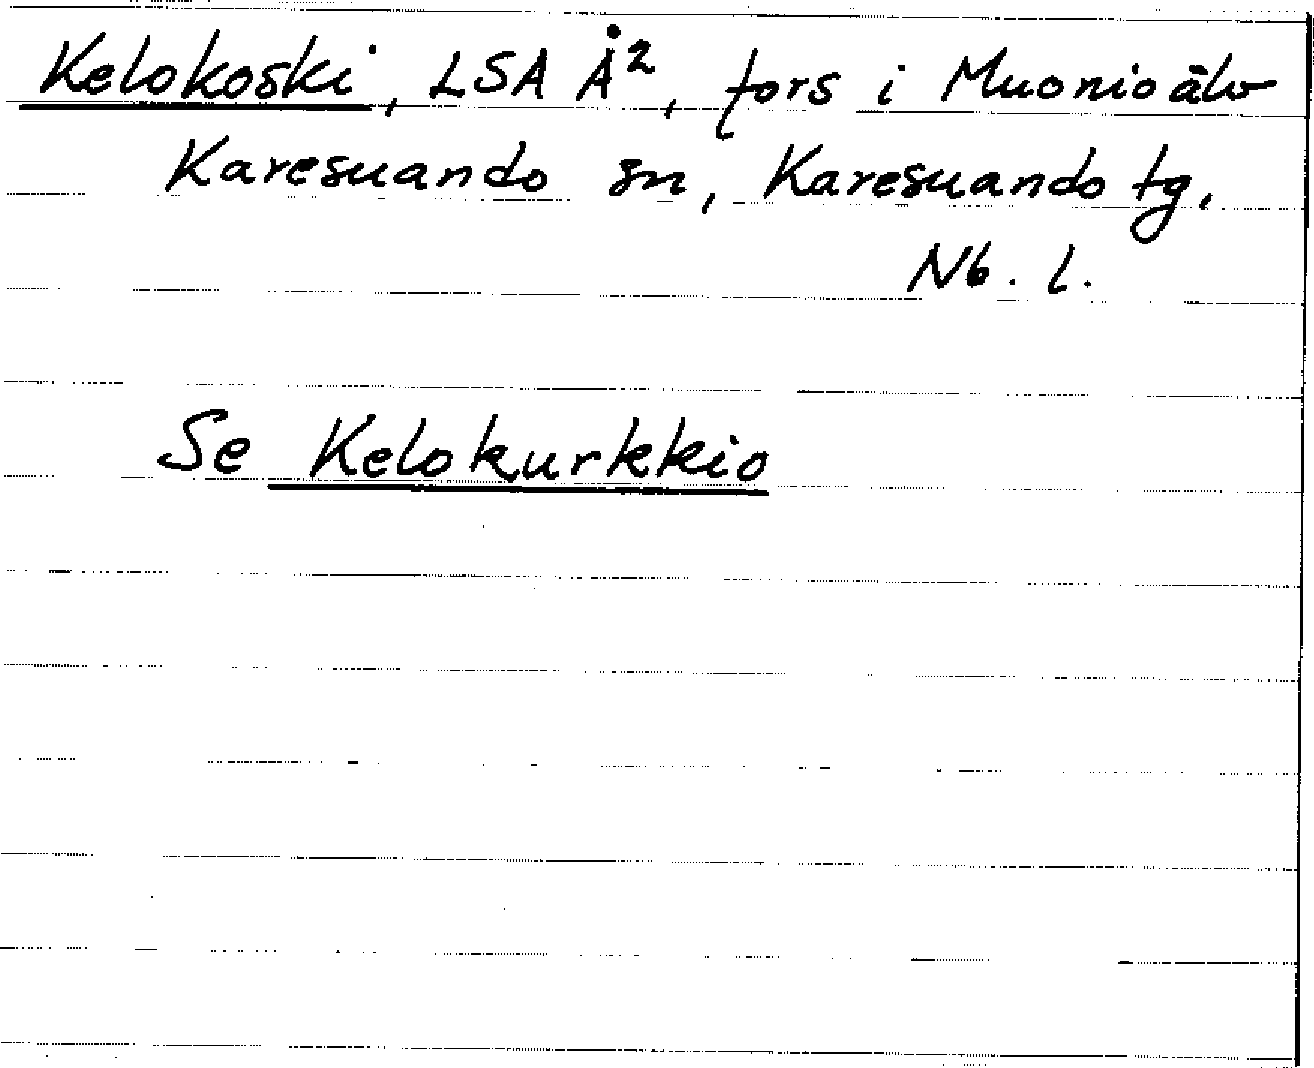 Kelokoski, LSA Å2, fors i Muonioälv
Karesuando sn, Karesuando tg,
Nb. l.
Se Kelokurkkio